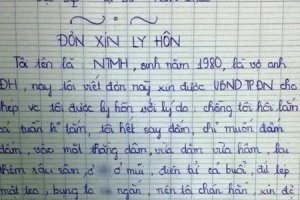 ĐƠN XIN LY HÔN
Tôi tên là NTMH, sinh năm 1980, là vợ anh
ĐH, nay tôi viết đơn này xin được UBND TPĐN cho
phép vc tôi được ly hôn với lý do: chồng tôi hôi lắm
cả tuần k tắm, tối hết say đắm, chỉ muốn đấm
đấm, vào mặt thằng dâm, vừa dâm vừa hâm, lại
thêm sâu răm, ở mũi, điện tử cả buổi, dế lép
mắt lẹo, bụng to ngắn, nên tôi chán hẳn, xin độ